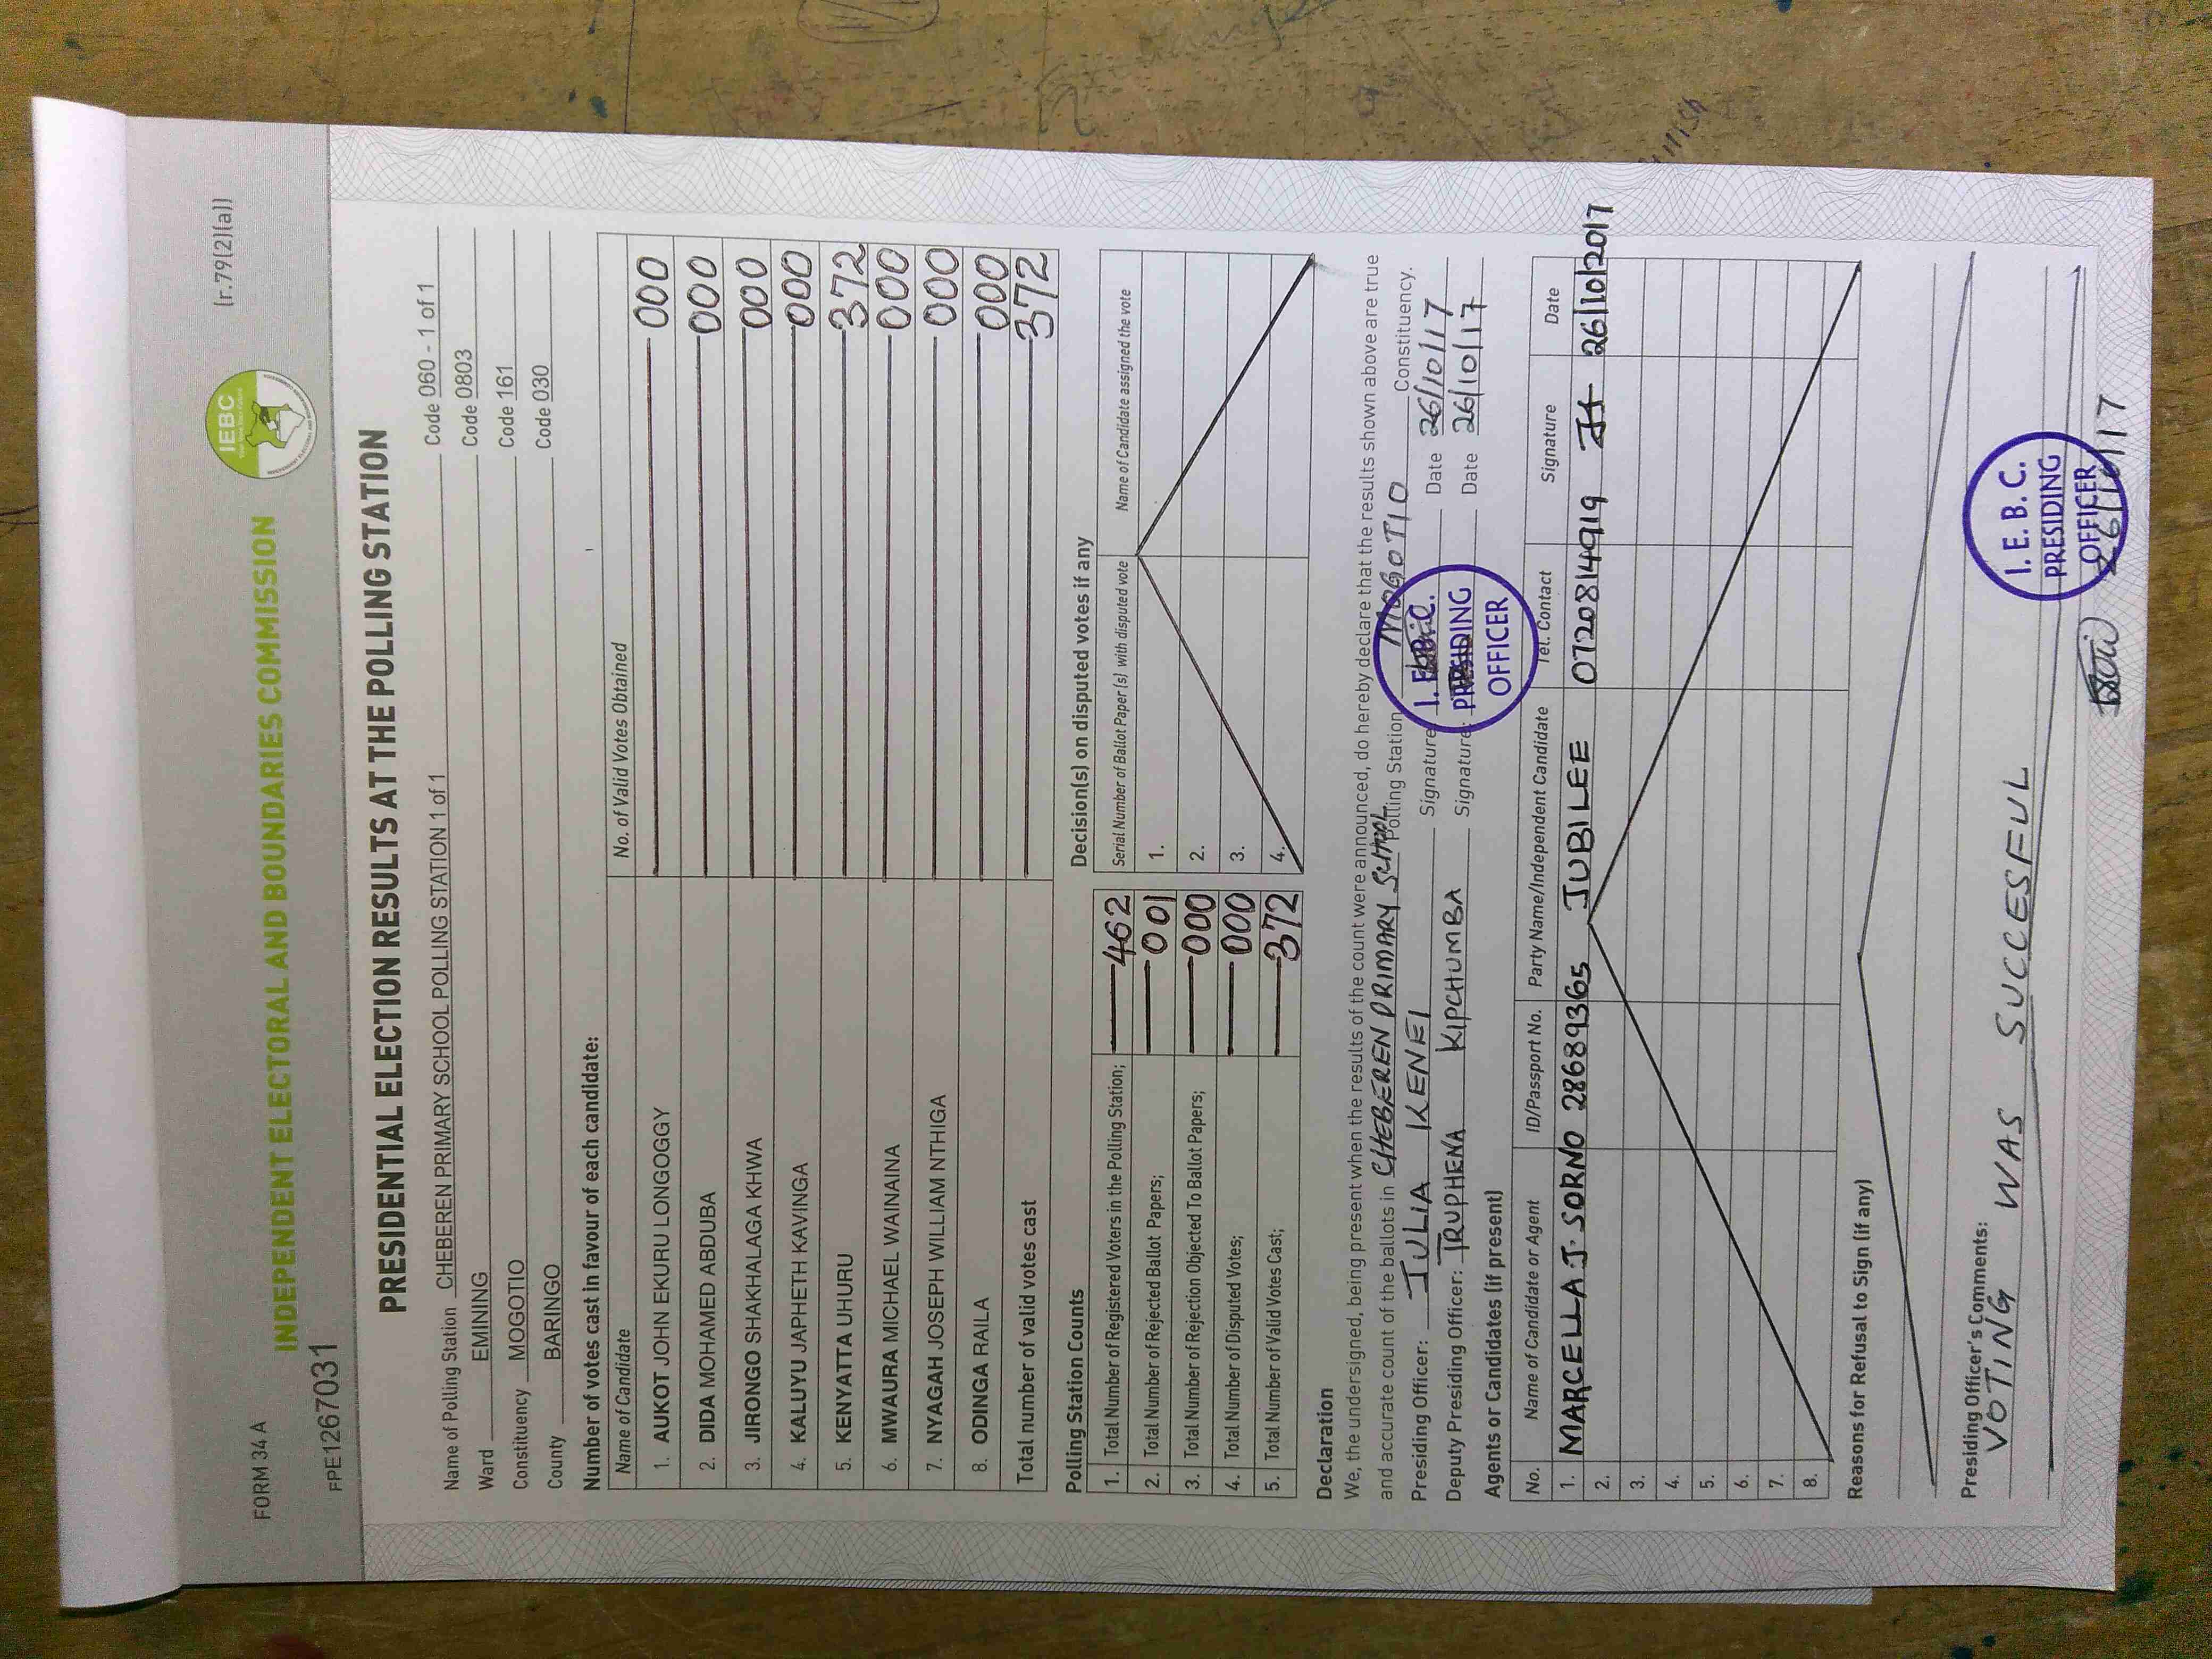 FORM 34 A
(r.79(2)(a))
IEBC
INDEPENDENT ELECTORAL AND BOUNDARIES COMMISSION
FPE1267031
PRESIDENTIAL ELECTION RESULTS AT THE POLLING STATION
Name of Polling Station CHEBEREN PRIMARY SCHOOL POLLING STATION 1 of 1 Code 060 - 1 of 1
Ward EMINING Code 0803
Constituency MOGOTIO Code 161
County BARINGO Code 030
Number of votes cast in favour of each candidate:
Name of Candidate No. of Valid Votes Obtained
1. AUKOT JOHN EKURU LONGOGGY 000
2. DIDA MOHAMED ABDUBA 000
3. JIRONGO SHAKHALAGA KHWA 000
4. KALUYU JAPHETH KAVINGA 000
5. KENYATTA UHURU 372
6. MWAURA MICHAEL WAINAINA 000
7. NYAGAH JOSEPH WILLIAM NTHIGA 000
8. ODINGA RAILA 000
Total number of valid votes cast 372
Polling Station Counts
1. Total Number of Registered Voters in the Polling Station; 462
2. Total Number of Rejected Ballot Papers; 001
3. Total Number of Rejection Objected To Ballot Papers; 000
4. Total Number of Disputed Votes; 000
5. Total Number of Valid Votes Cast; 372
Decision(s) on disputed votes if any
Serial Number of Ballot Paper(s) with disputed vote Name of Candidate assigned the vote
1.
2.
3.
4.
Declaration
We, the undersigned, being present when the results of the count were announced, do hereby declare that the results shown above are true
and accurate count of the ballots in CHEBEREN PRIMARY SCHOOL Polling Station MOGOTIO Constituency.
Presiding Officer: JULIA KENEI Signature Date 26/10/17
Deputy Presiding Officer: TRUPHENA KIPCHUMBA Signature Date 26/10/17
I.E.B.C.
PRESIDING
OFFICER
Agents or Candidates (if present)
No. Name of Candidate or Agent ID/Passport No. Party Name/Independent Candidate Tel. Contact Signature Date
1. MARCELLA J. SORNO 28689365 JUBILEE 0720814919 26/10/2017
2.
3.
4.
5.
6.
7.
8.
Reasons for Refusal to Sign (if any)
Presiding Officer's Comments:
VOTING WAS SUCCESFUL
I. E. B. C.
PRESIDING
OFFICER
26/10/17